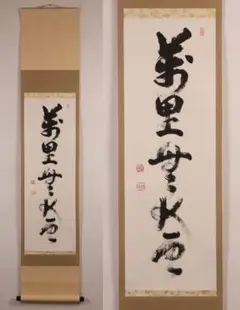 萬里無片雲
萬里無片雲